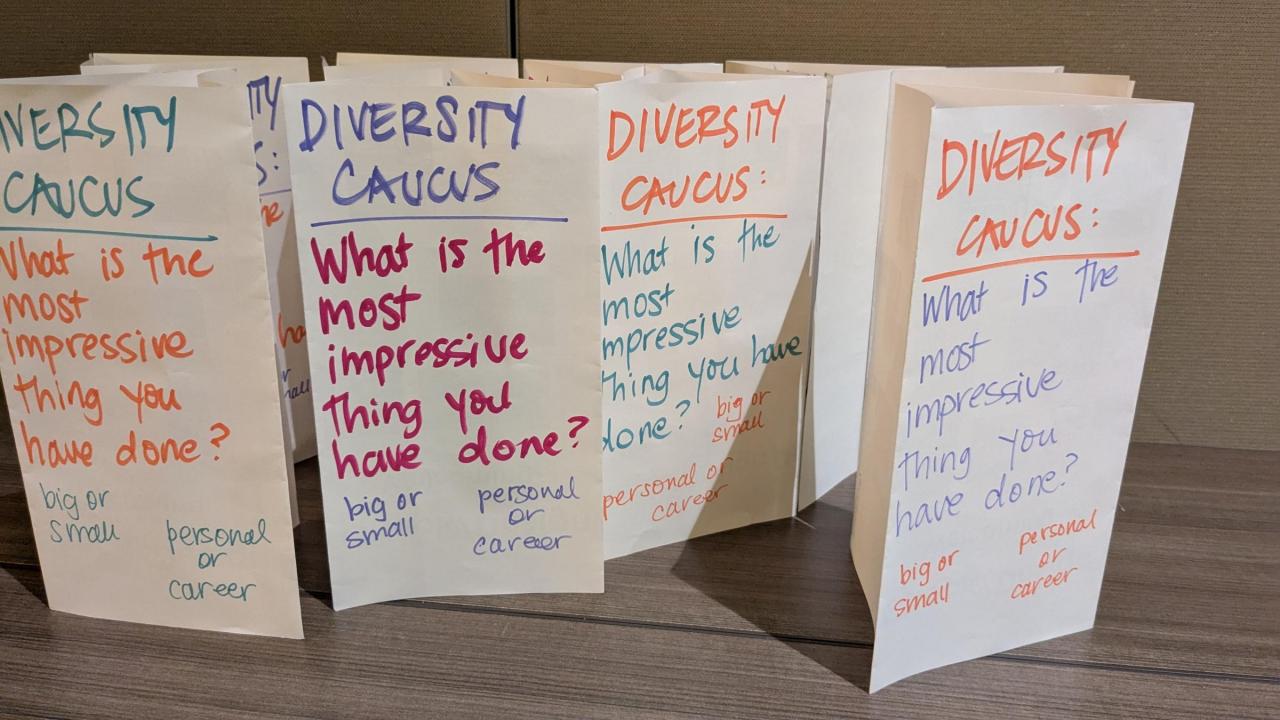 IVERSITY
CAUCUS
What is the
most
impressive
thing you
have done?
big or
small
personal
or
career
ITY
S:
DIVERSITY
CAUCUS
What is the
most
impressive
thing you
have done?
big or
small
personal
or
career
DIVERSITY
CAUCUS:
What is the
most
mpressive
thing you have
done?
big or
small
personal or
career
DIVERSITY
CAUCUS:
What is the
most
impressive
thing you
have done?
big or
small
personal
or
career